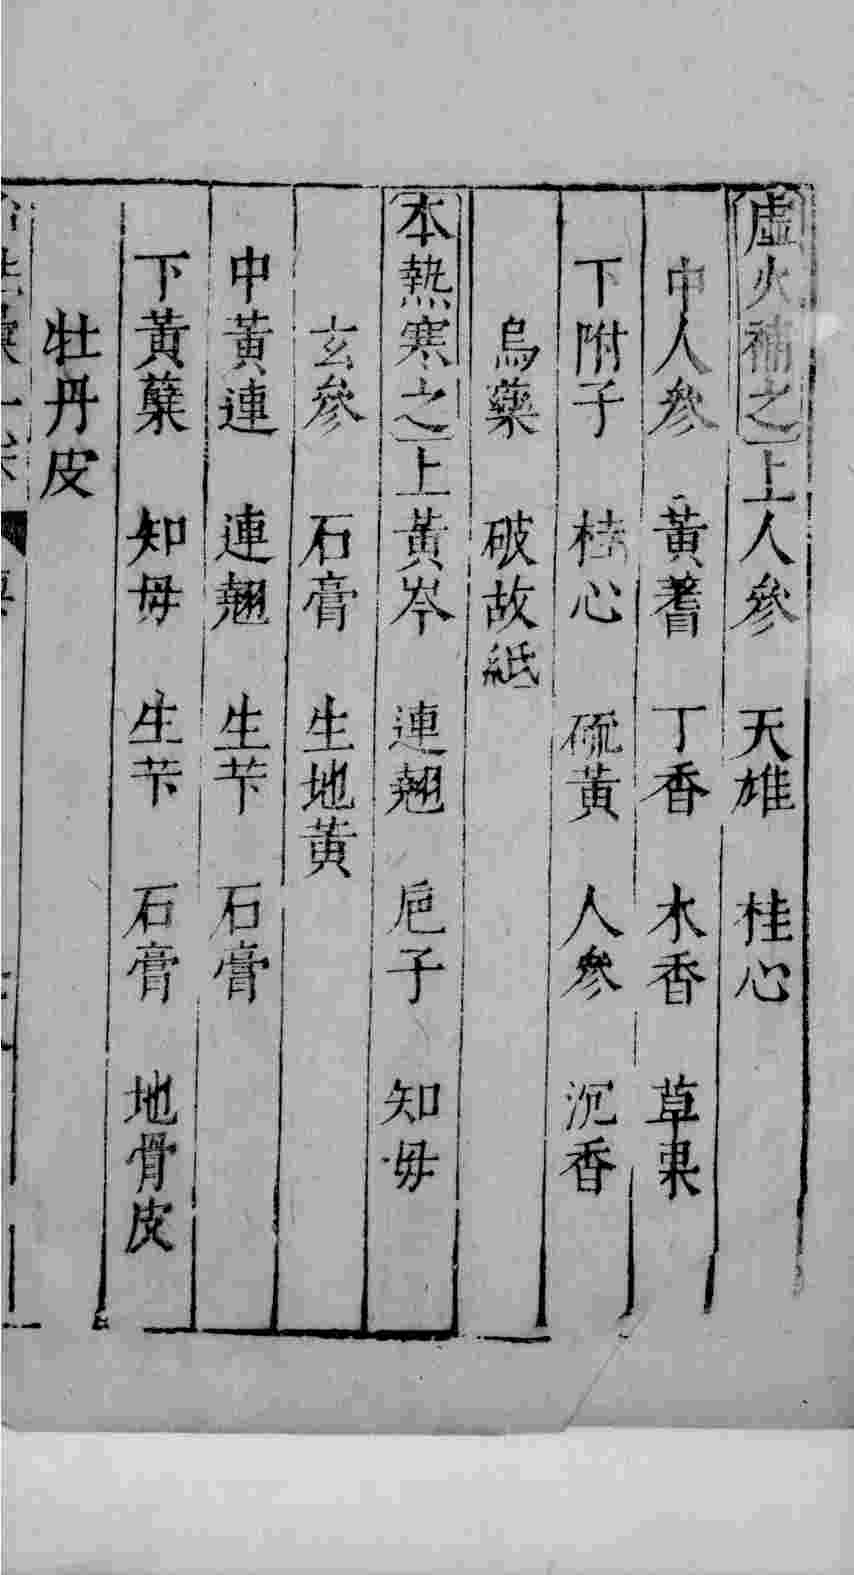 虛火補之上人參　天雄　桂心
中人參　黃蓍　丁香　木香　草果
下附子　桂心　硫黃　人參　沉香
烏藥　破故紙
本熱寒之上黃岑　連翹　巵子　知毋
玄參　石膏　生地黃
中黃連　連翹　生芐　石膏
下黃蘗　知毋　生芐　石膏　地骨皮
牡丹皮